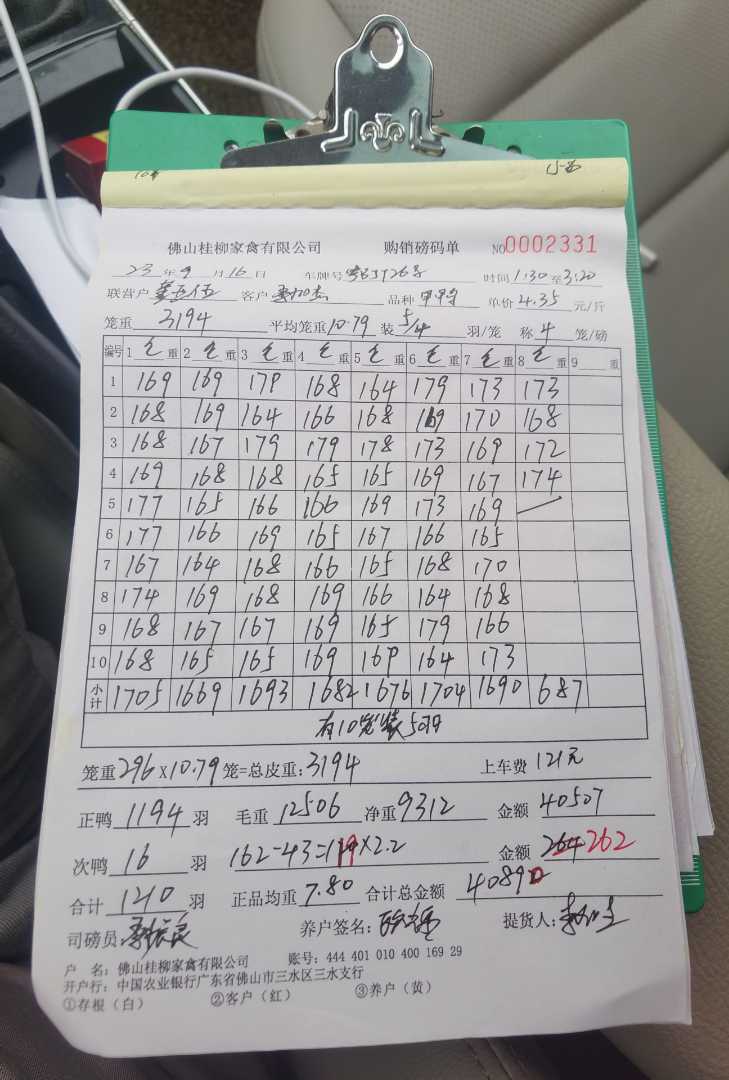 佛山桂柳家禽有限公司 购销磅码单 NO0002331
23年9月16日 车牌号 时间1:30至3:20
联营户 客户 品种 单价4.35元/斤
笼重3194 平均笼重10.79装5/4羽/笼 称4笼/磅
编号 1毛重 2毛重 3毛重 4毛重 5毛重 6毛重 7毛重 8毛重 9重
1 169 169 179 168 164 179 173 173
2 168 169 164 166 168 169 170 168
3 168 167 179 179 178 173 169 172
4 169 168 168 165 165 169 167 174
5 177 165 166 166 169 173 169
6 177 166 169 165 167 166 165
7 167 164 168 166 165 168 170
8 174 169 168 169 166 164 168
9 168 167 167 169 165 179 166
10 168 165 165 169 169 164 173
小计 1705 1669 1693 1682 1676 1704 1690 687
有10笼装5羽
笼重296×10.79笼=总皮重:3194 上车费121元
正鸭1194羽 毛重12506 净重9312 金额40507
次鸭16羽 162-43=119×2.2 金额264 262
合计1210羽 正品均重7.80 合计总金额40890
司磅员: 养户签名: 提货人:
户 名:佛山桂柳家禽有限公司 账号:444 401 010 400 169 29
开户行:中国农业银行广东省佛山市三水区三水支行
①存根(白) ②客户(红) ③养户(黄)